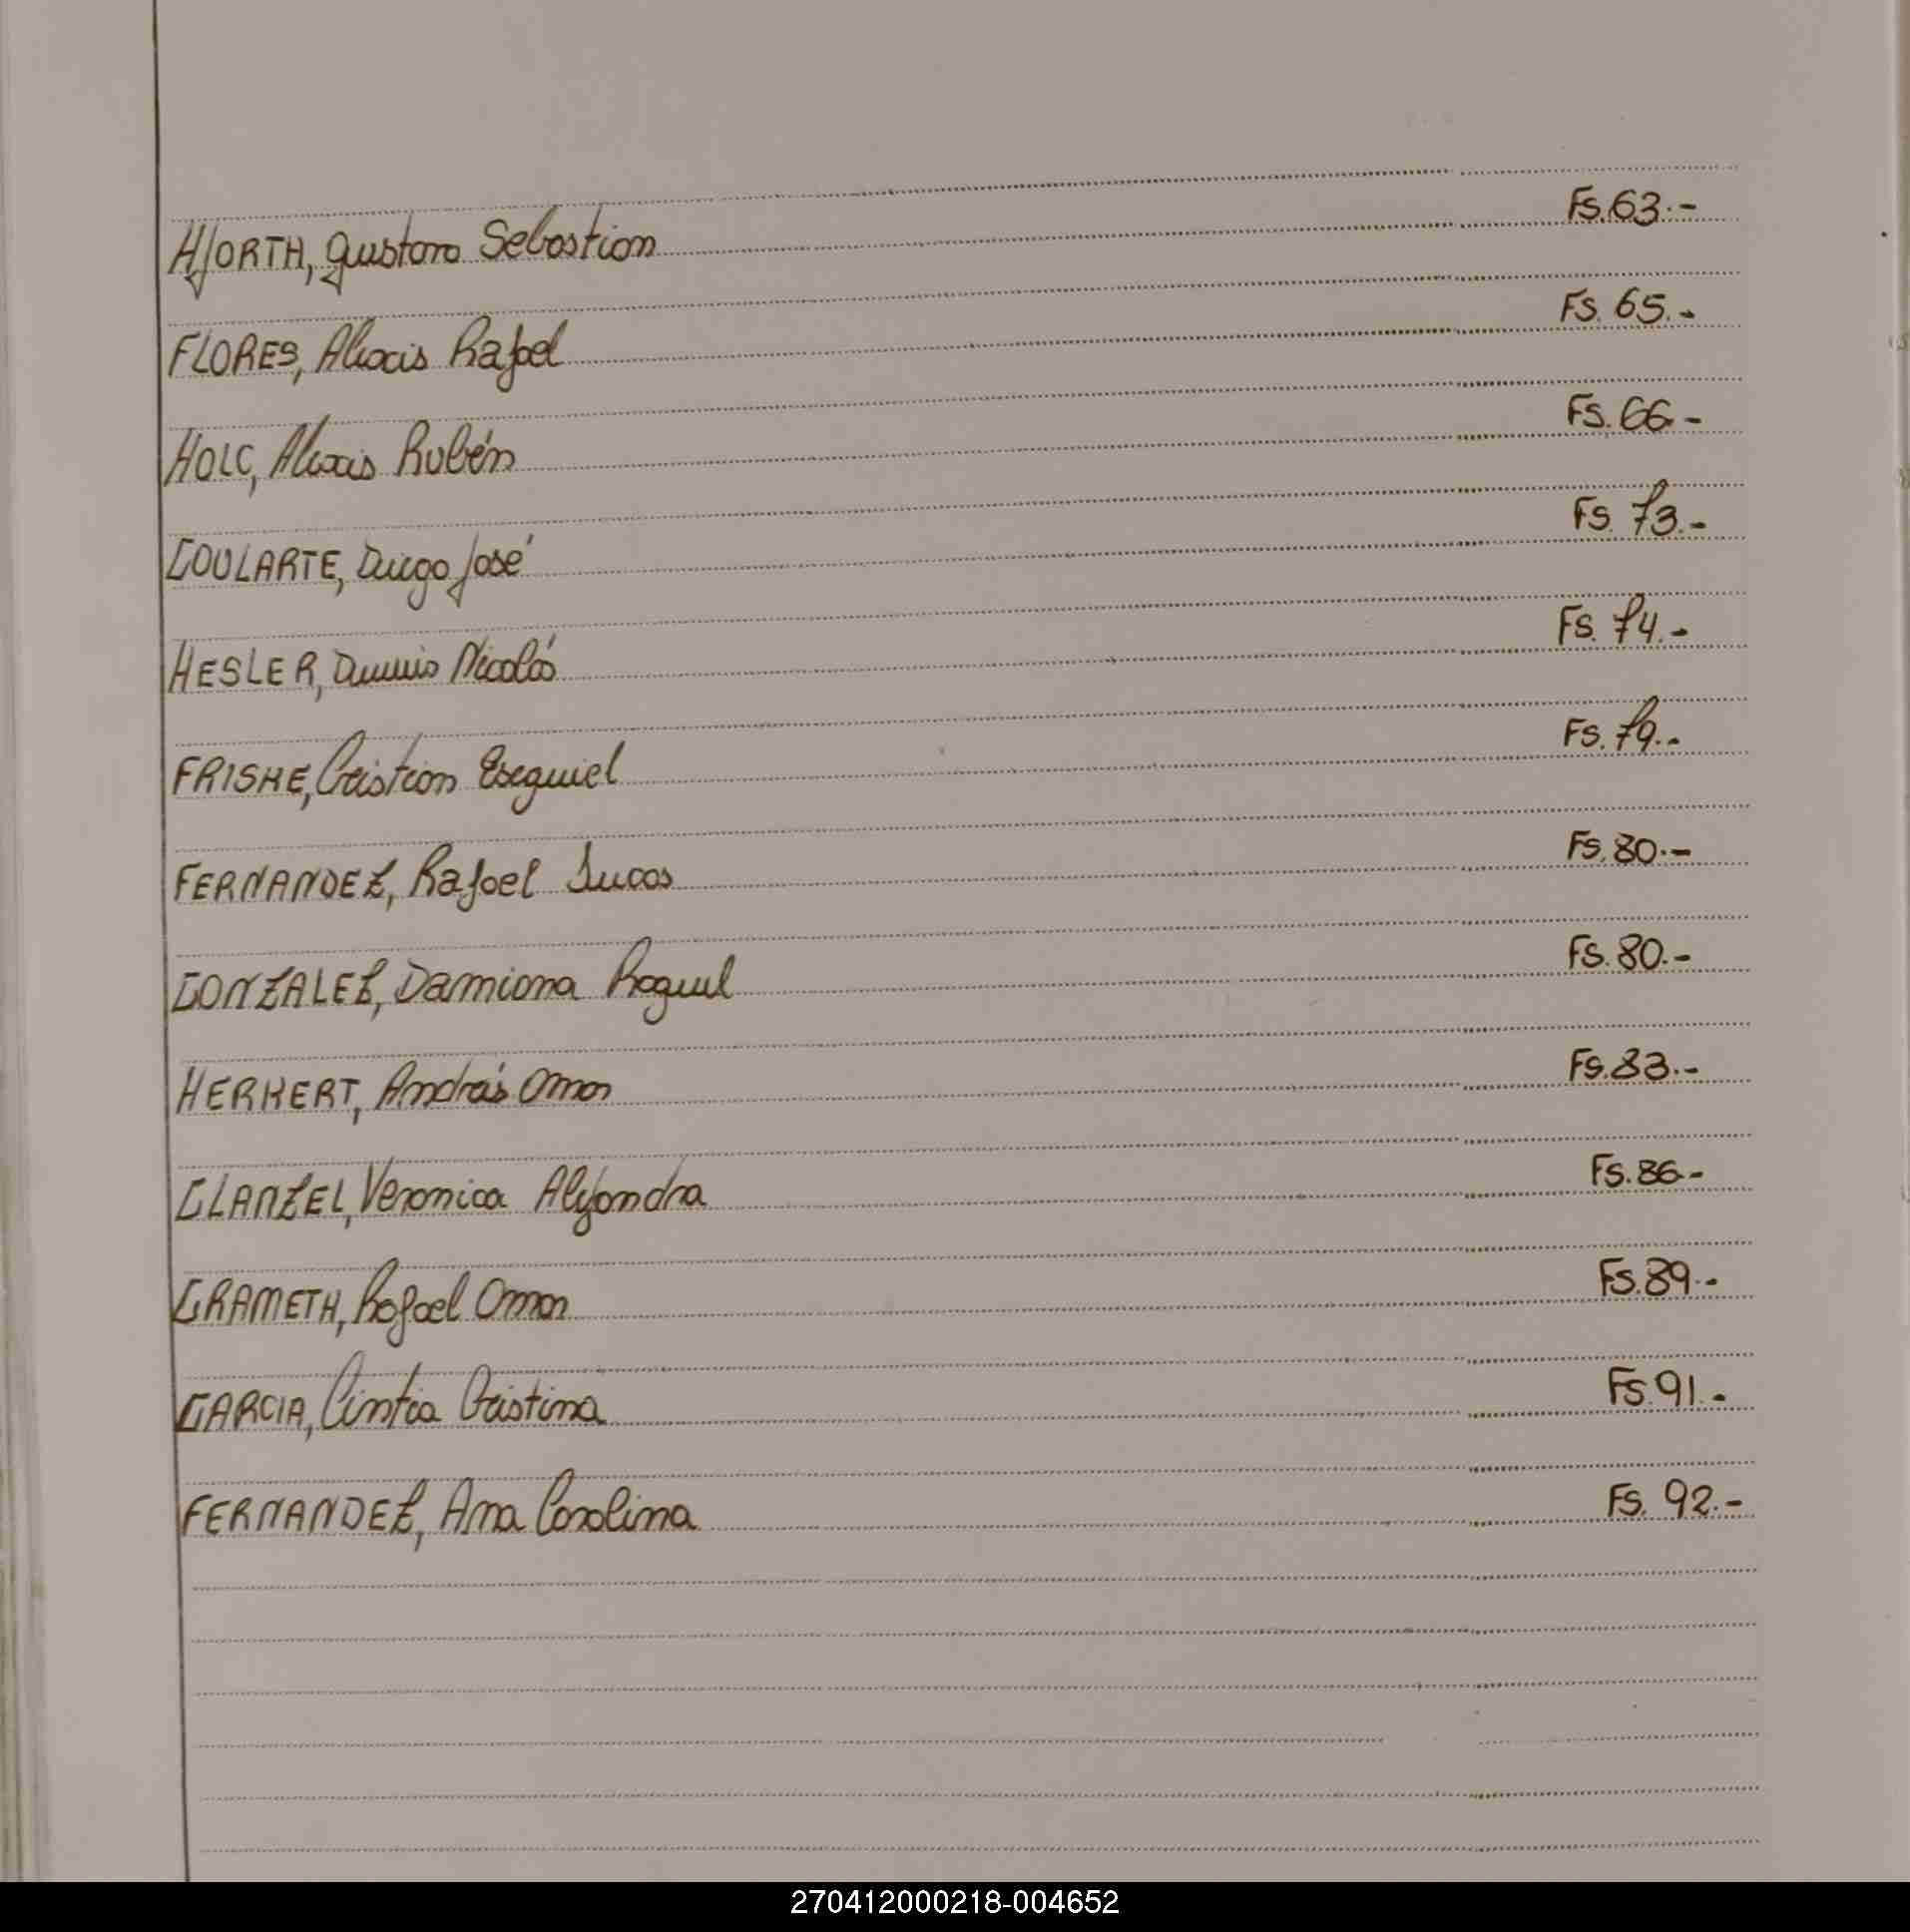 HJORTH, Gustavo Sebastian Fs.63.-
FLORES, Alexis Rafael Fs. 65.-
HOLC, Alexis Rubén Fs. 66.-
GOULARTE, Diego José Fs. 73.-
HESLER, Dennis Nicolás Fs. 74.-
FRISKE, Cristian Esequiel Fs. 79.-
FERNANDEZ, Rafael Lucas Fs. 80.-
GONZALEZ, Damiana Raquel Fs. 80.-
HERKERT, Andrés Omar Fs. 83.-
GLANZEL, Veronica Alejandra Fs. 86.-
GRAMETH, Rafael Omar Fs. 89.-
GARCIA, Cintia Cristina Fs. 91.-
FERNANDEZ, Ana Carolina Fs. 92.-
270412000218-004652